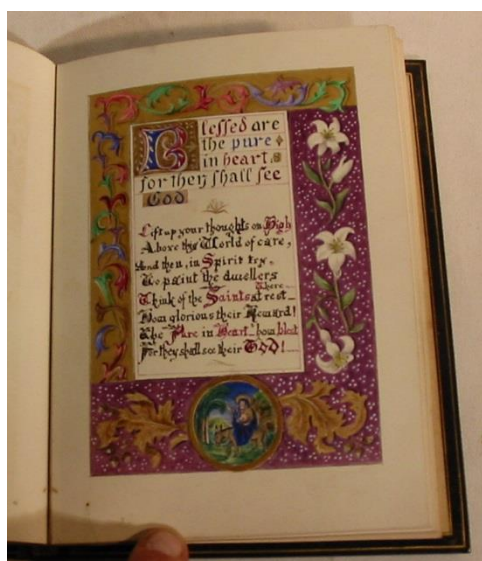 Blessed are
the pure
in heart
for they shall see
God
Lift up your thoughts on High
Above this World of care,
And then, in Spirit try,
To paint the dwellers
There
Think of the Saints at rest
How glorious their Reward!
The Pure in Heart how blest
For they shall see their GOD!